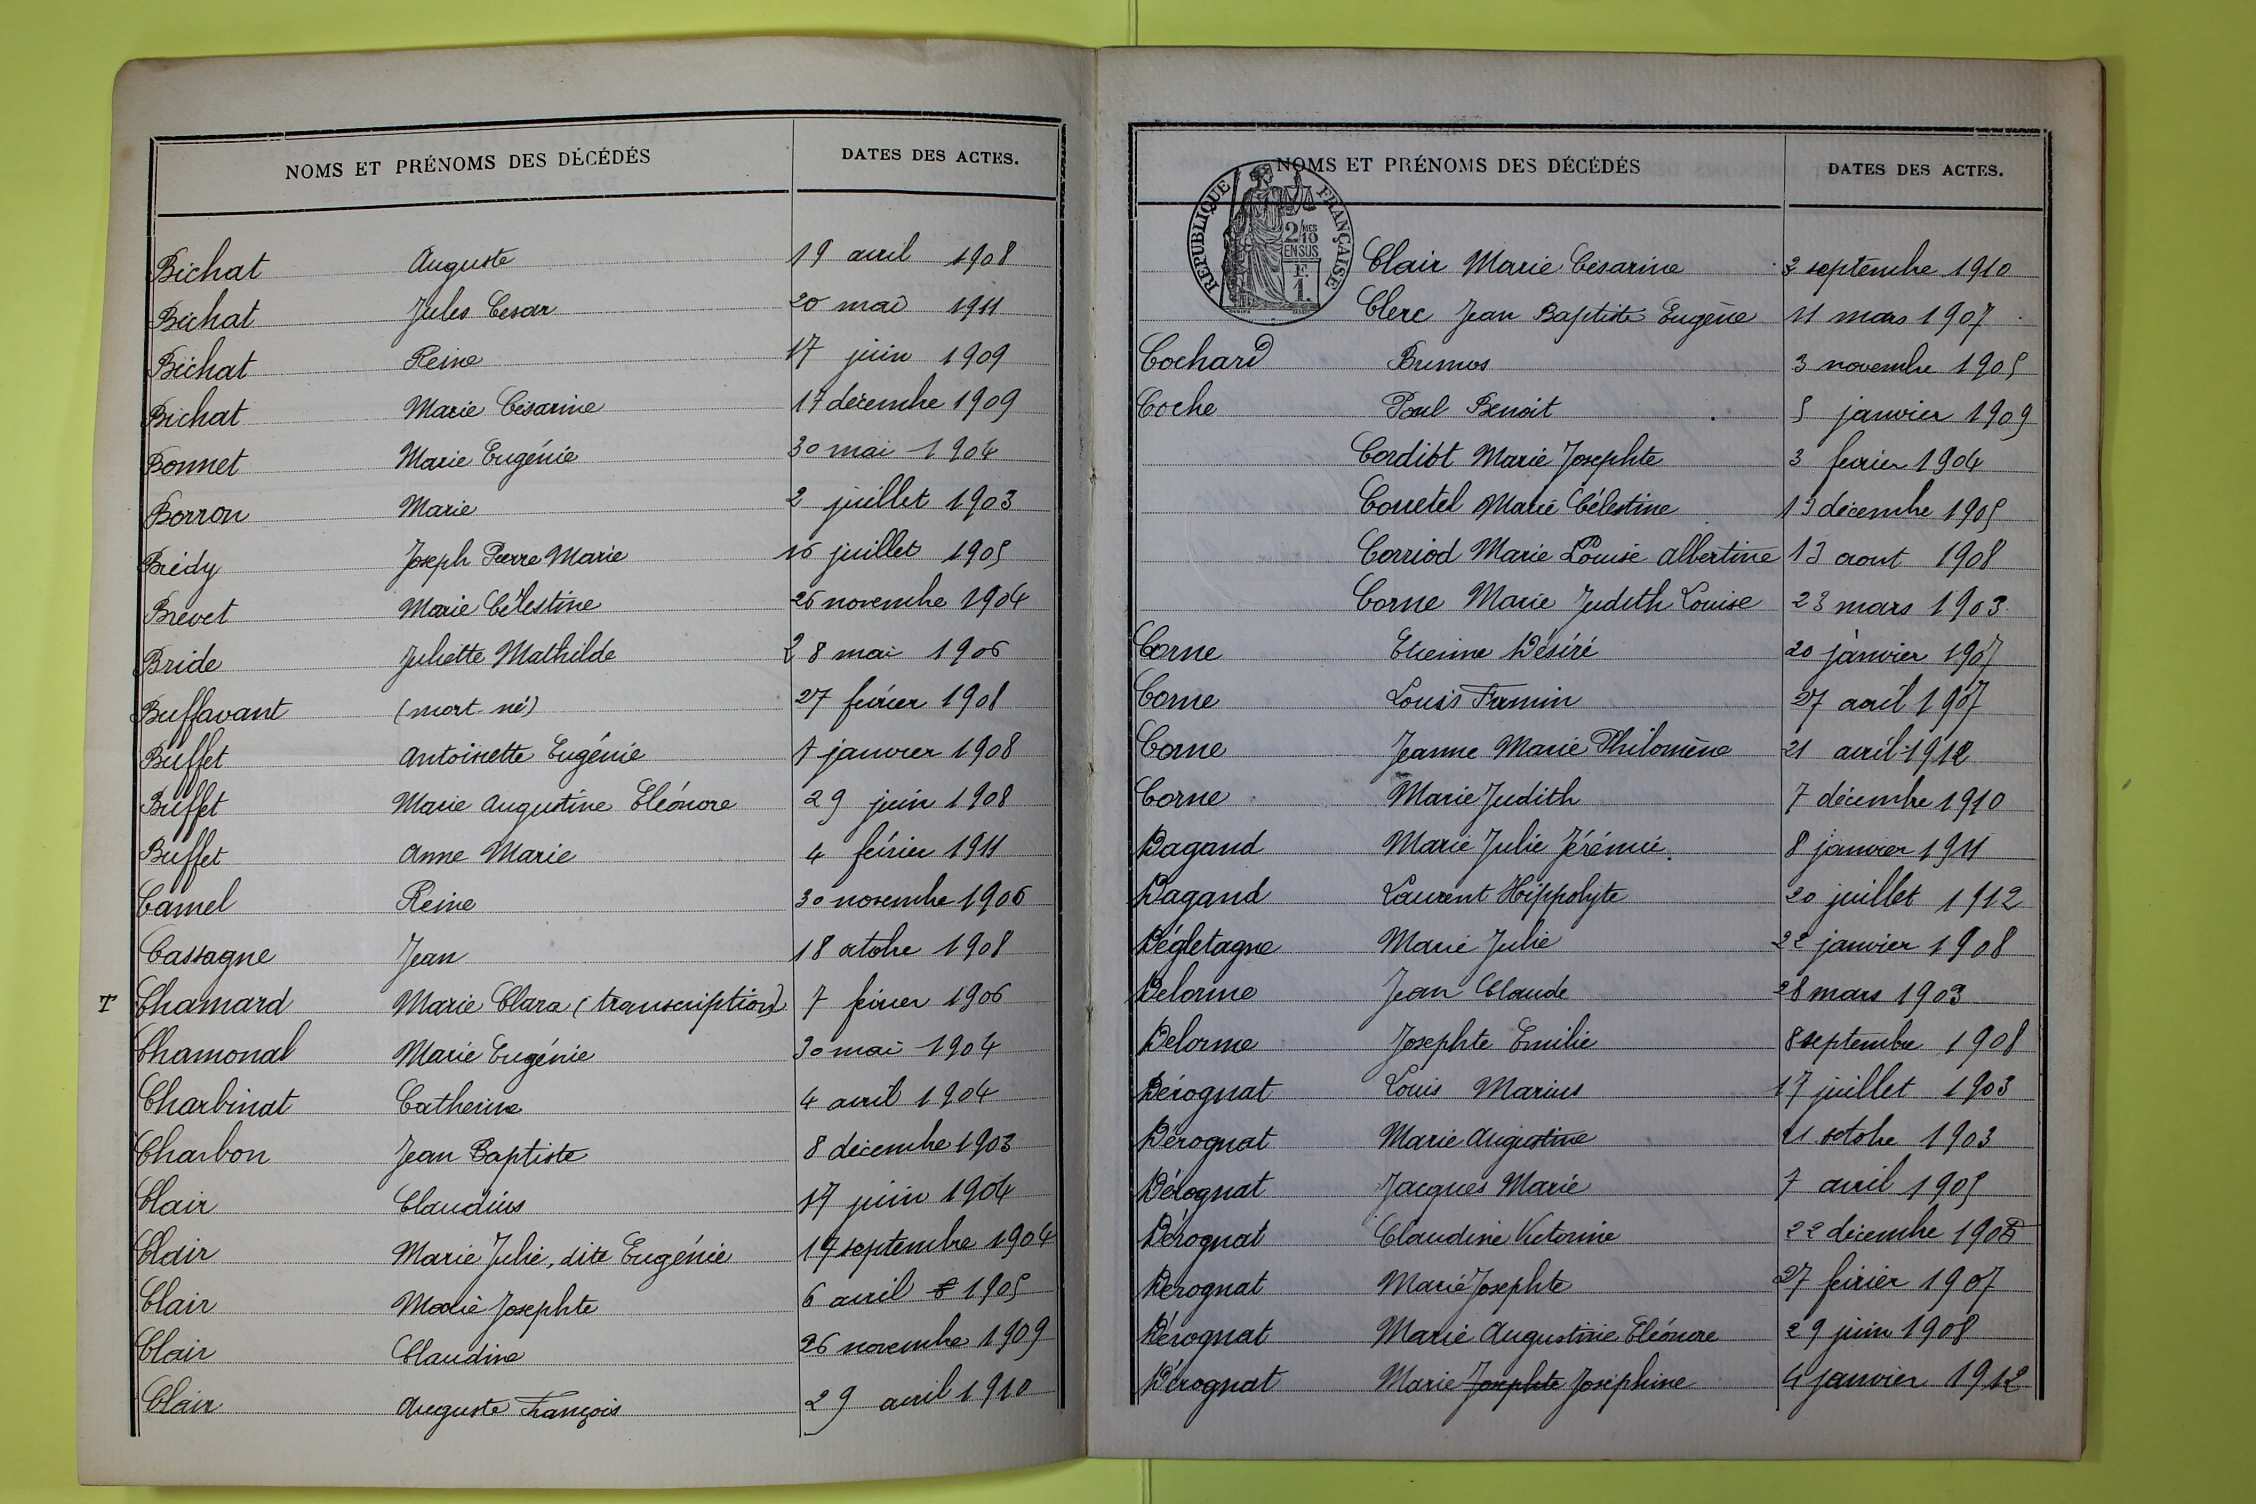 NOMS ET PRÉNOMS DES DÉCÉDÉS DATES DES ACTES.
Bichat Auguste 19 avril 1908
Bichat Jules Cesar 20 mai 1911
Bichat Reine 17 juin 1909
Bichat Marie Césarine 17 décembre 1909
Bonnet Marie Eugénie 30 mai 1904
Borron Marie 2 juillet 1903
Brédy Joseph Pierre Marie 16 juillet 1905
Brevet Marie Célestine 26 novembre 1904
Bride Juliette Mathilde 28 mai 1906
Buffavant (mort-né) 27 février 1908
Buffet Antoinette Eugénie 7 janvier 1908
Buffet Marie Augustine Eléonore 29 juin 1908
Buffet Anne Marie 4 février 1911
Camel Reine 30 novembre 1906
Cassagne Jean 18 octobre 1908
T Chamard Marie Clara (transcription) 7 février 1906
Chamonal Marie Eugénie 30 mai 1904
Charbinat Catherine 4 avril 1904
Charbon Jean Baptiste 8 décembre 1903
Clair Claudius 17 juin 1904
Clair Marie Julie, dite Eugénie 17 septembre 1904
Clair Marie Josephte 6 avril 1905
Clair Claudine 26 novembre 1909
Clair Auguste François 29 avril 1910
NOMS ET PRÉNOMS DES DÉCÉDÉS DATES DES ACTES.
REPUBLIQUE FRANÇAISE
2/10 MES
EN SUS
F.
1.
Clair Marie Césarine 3 septembre 1910
Clerc Jean Baptiste Eugène 11 mars 1907
Cochard 3 novembre 1905
Coche Paul Benoit 5 janvier 1909
Cordibt Marie Josephte 3 février 1904
Corretel Marie Célestine 13 décembre 1905
Corriod Marie Louise Albertine 13 aout 1908
Corne Marie Judith Louise 23 mars 1903
Corne Etienne Désiré 20 janvier 1907
Corne Louis Firmin 27 avril 1907
Corne Jeanne Marie Philomène 21 avril 1912
Corne Marie Judith 7 décembre 1910
Dagand Marie Julie Jérémie. 8 janvier 1911
Dagand Laurent Hippolyte 20 juillet 1912
Dégletagne Marie Julie 22 janvier 1908
Delorme Jean Claude 28 mars 1903
Delorme Josephte Emilie 8 septembre 1908
Dérognat Louis Marius 17 juillet 1903
Dérognat Marie Augustine 21 octobre 1903
Dérognat Jacques Marie 7 avril 1905
Dérognat Claudine Victorine 22 décembre
Dérognat Marie Josephte 27 février 1907
Dérognat Marie Augustine Eléonore 29 juin 1908
Dérognat Marie Josephte Joséphine 4 janvier 1912